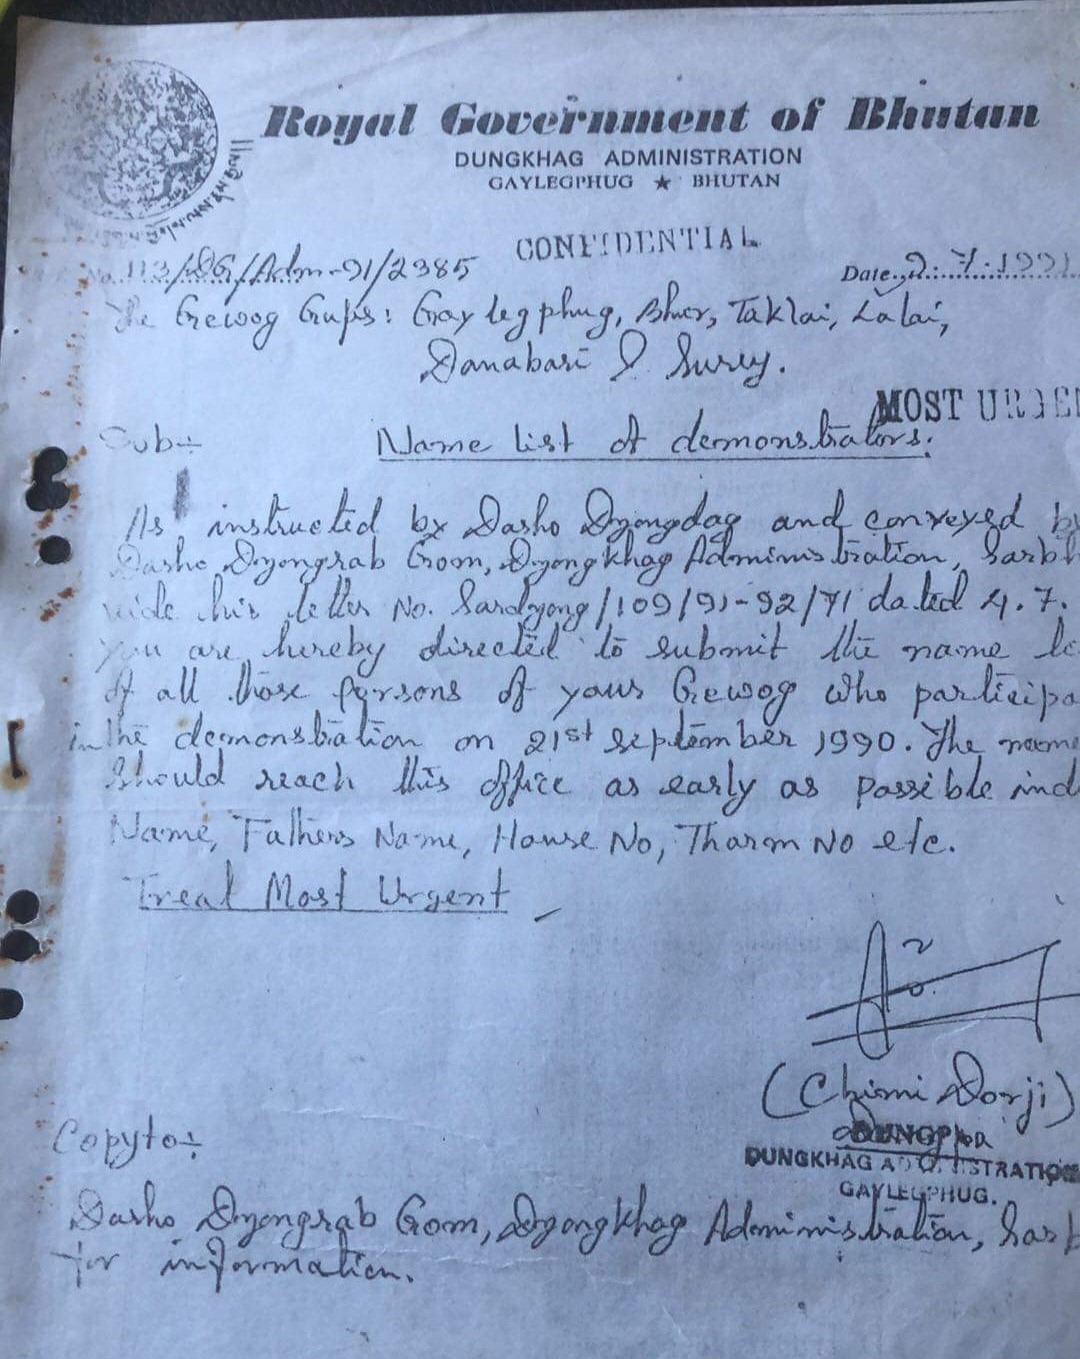 Royal Government of Bhutan
DUNGKHAG ADMINISTRATION
GAYLEGPHUG ★ BHUTAN
CONFIDENTIAL
No. 113/DG/Adm-91/2385
Date 9.7.1991
The Gewog Gups: Gaylegphug, Bhur, Taklai, Lalai,
Danabari & Surey.
MOST URGEN
Sub:-
Name list of demonstrators.
As instructed by Dasho Dzongdag and conveyed by
Dasho Dzongrab Gom, Dzongkhag Administration, Sarbh
vide his letter No. Sardzong/109/91-92/71 dated 4.7.
You are hereby directed to submit the name li
of all those persons of your Gewog who participa
in the demonstration on 21st september 1990. The name
should reach this office as early as possible ind
Name, Fathers Name, House No, Tharm No etc.
Treat Most Urgent
(Chimi Dorji)
DUNGPA
DUNGKHAG ADMINISTRATION
GAYLEGPHUG.
Copy to:-
Dasho Dzongrab Gom, Dzongkhag Administration, Sarb
for information.